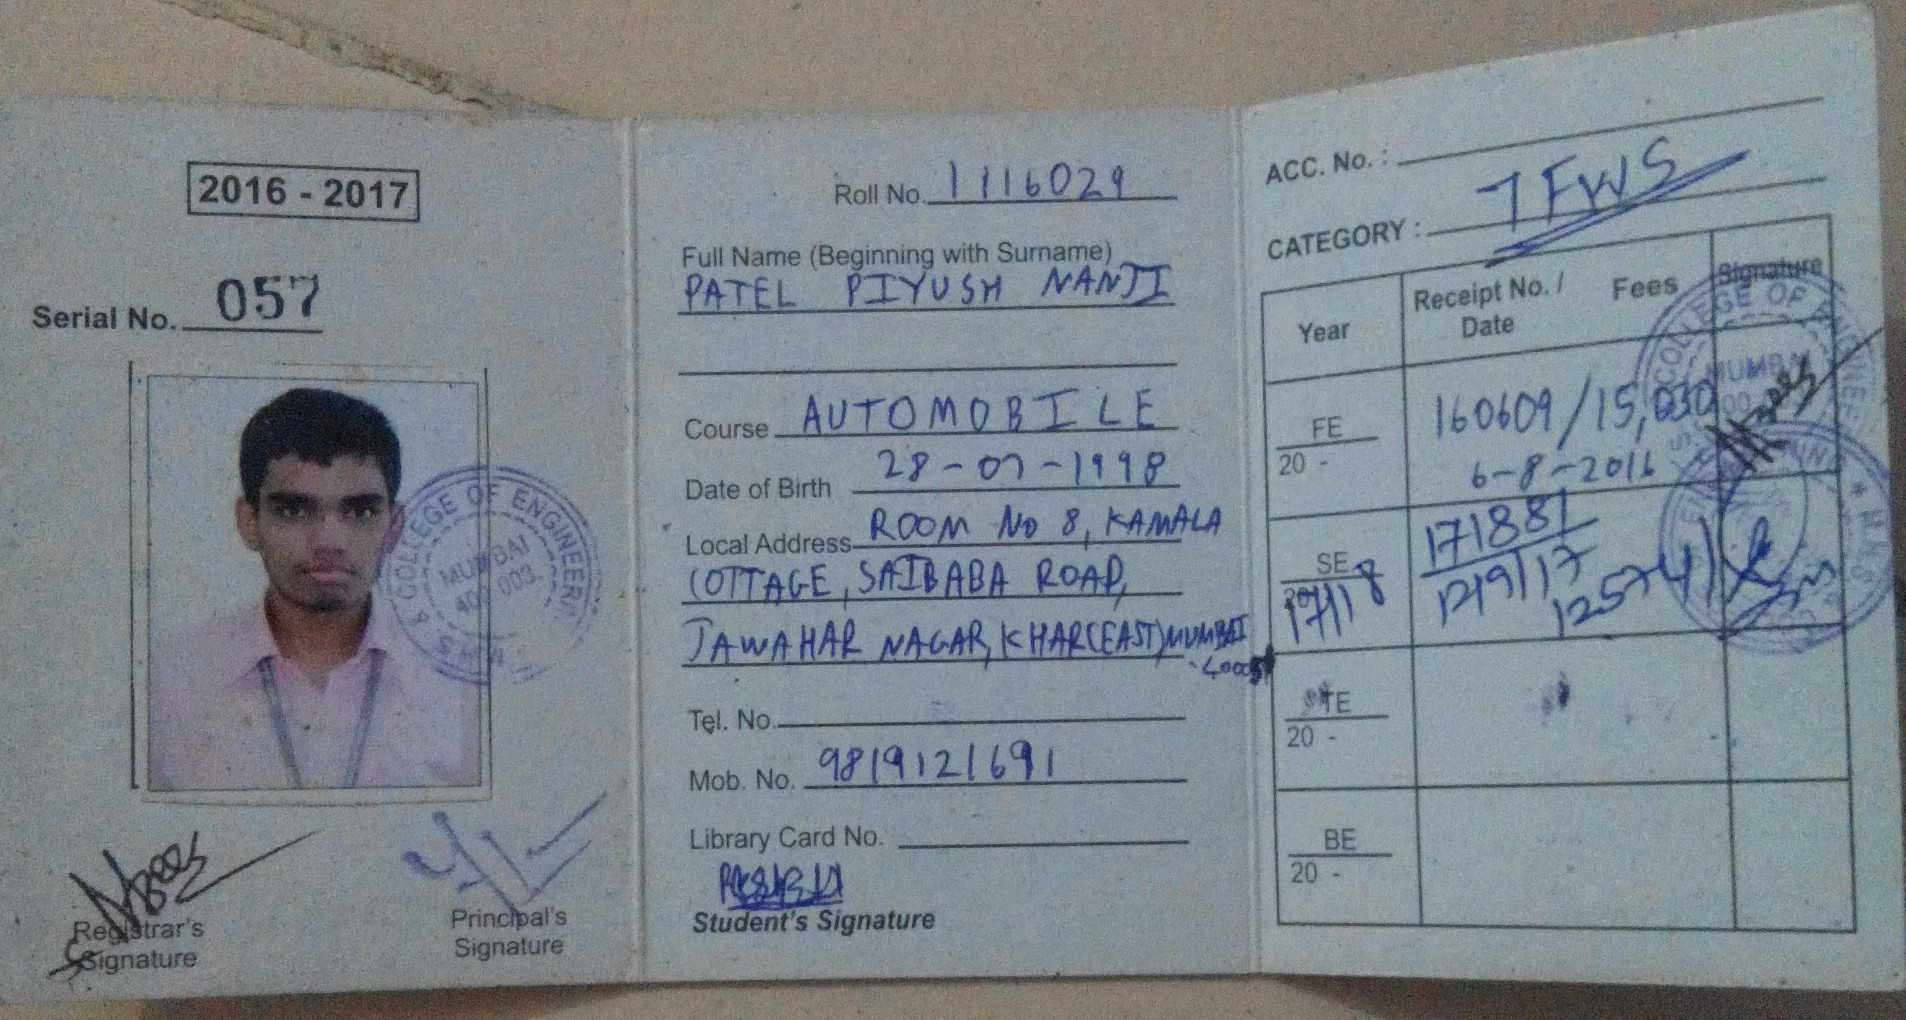 2016 - 2017
Serial No. 057
COLLEGE OF ENGINEERI
MUMBAI
003
M.H.S.S.
Registrar's
Signature
Principal's
Signature
Roll No. 1116029
Full Name (Beginning with Surname)
PATEL PIYUSH NANJI
Course AUTOMOBILE
Date of Birth 28-07-1998
Local Address ROOM NO 8, KAMALA
COTTAGE, SAIBABA ROAD,
JAWAHAR NAGAR, KHAR(EAST) MUMBAI
Tel. No.
Mob. No. 9819121691
Library Card No.
Student's Signature
ACC. No. :
CATEGORY : TFWS
Year Receipt No. / Date Fees Signature
FE
20 -
160609/15,030
6-8-2016
SE
17/18
171881
12/9/17
12574/
TE
20 -
BE
20 -
COLLEGE OF ENGINEE
MUMBAI